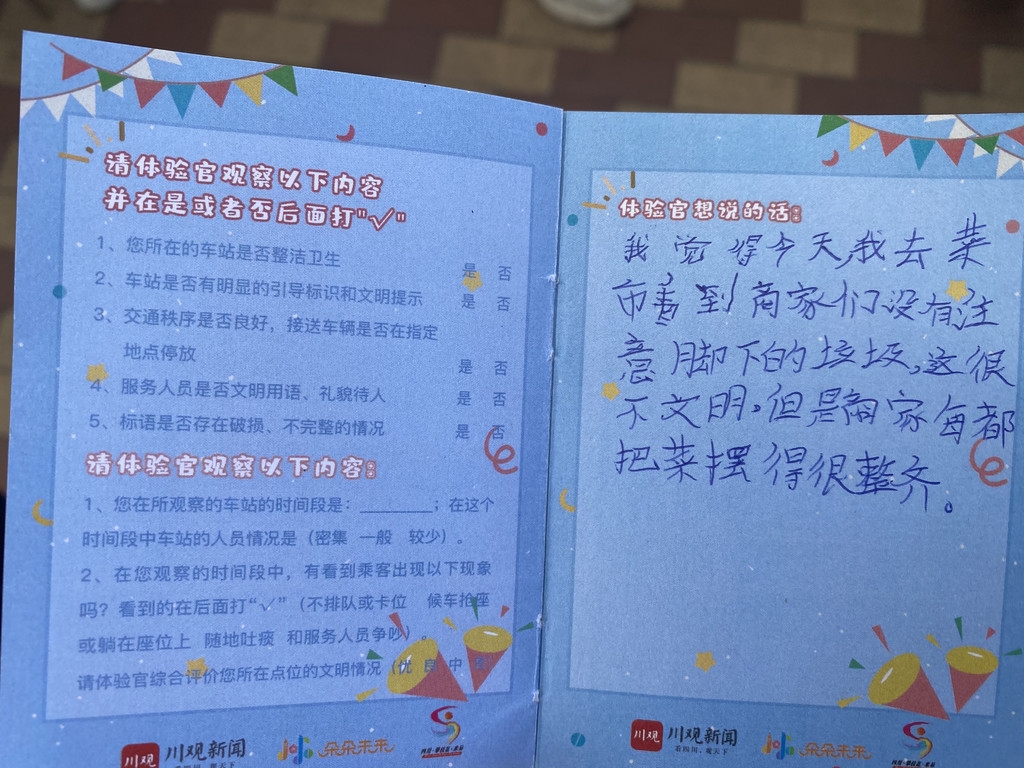 请体验官观察以下内容
并在是或者否后面打"√"
1、您所在的车站是否整洁卫生 是 否
2、车站是否有明显的引导标识和文明提示 是 否
3、交通秩序是否良好，接送车辆是否在指定
地点停放 是 否
4、服务人员是否文明用语、礼貌待人 是 否
5、标语是否存在破损、不完整的情况 是 否
请体验官观察以下内容：
1、您在所观察的车站的时间段是：________；在这个
时间段中车站的人员情况是（密集 一般 较少）。
2、在您观察的时间段中，有看到乘客出现以下现象
吗？看到的在后面打“√”（不排队或卡位 候车抢座
或躺在座位上 随地吐痰 和服务人员争吵）。
请体验官综合评价您所在点位的文明情况（优 良 中
川观 川观新闻
看四川，观天下
朵朵未来
体验官想说的话：
我觉得今天，我去菜
市看到商家们没有注
意脚下的垃圾，这很
不文明。但是商家每都
把菜摆得很整齐。
川观 川观新闻
看四川，观天下
朵朵未来